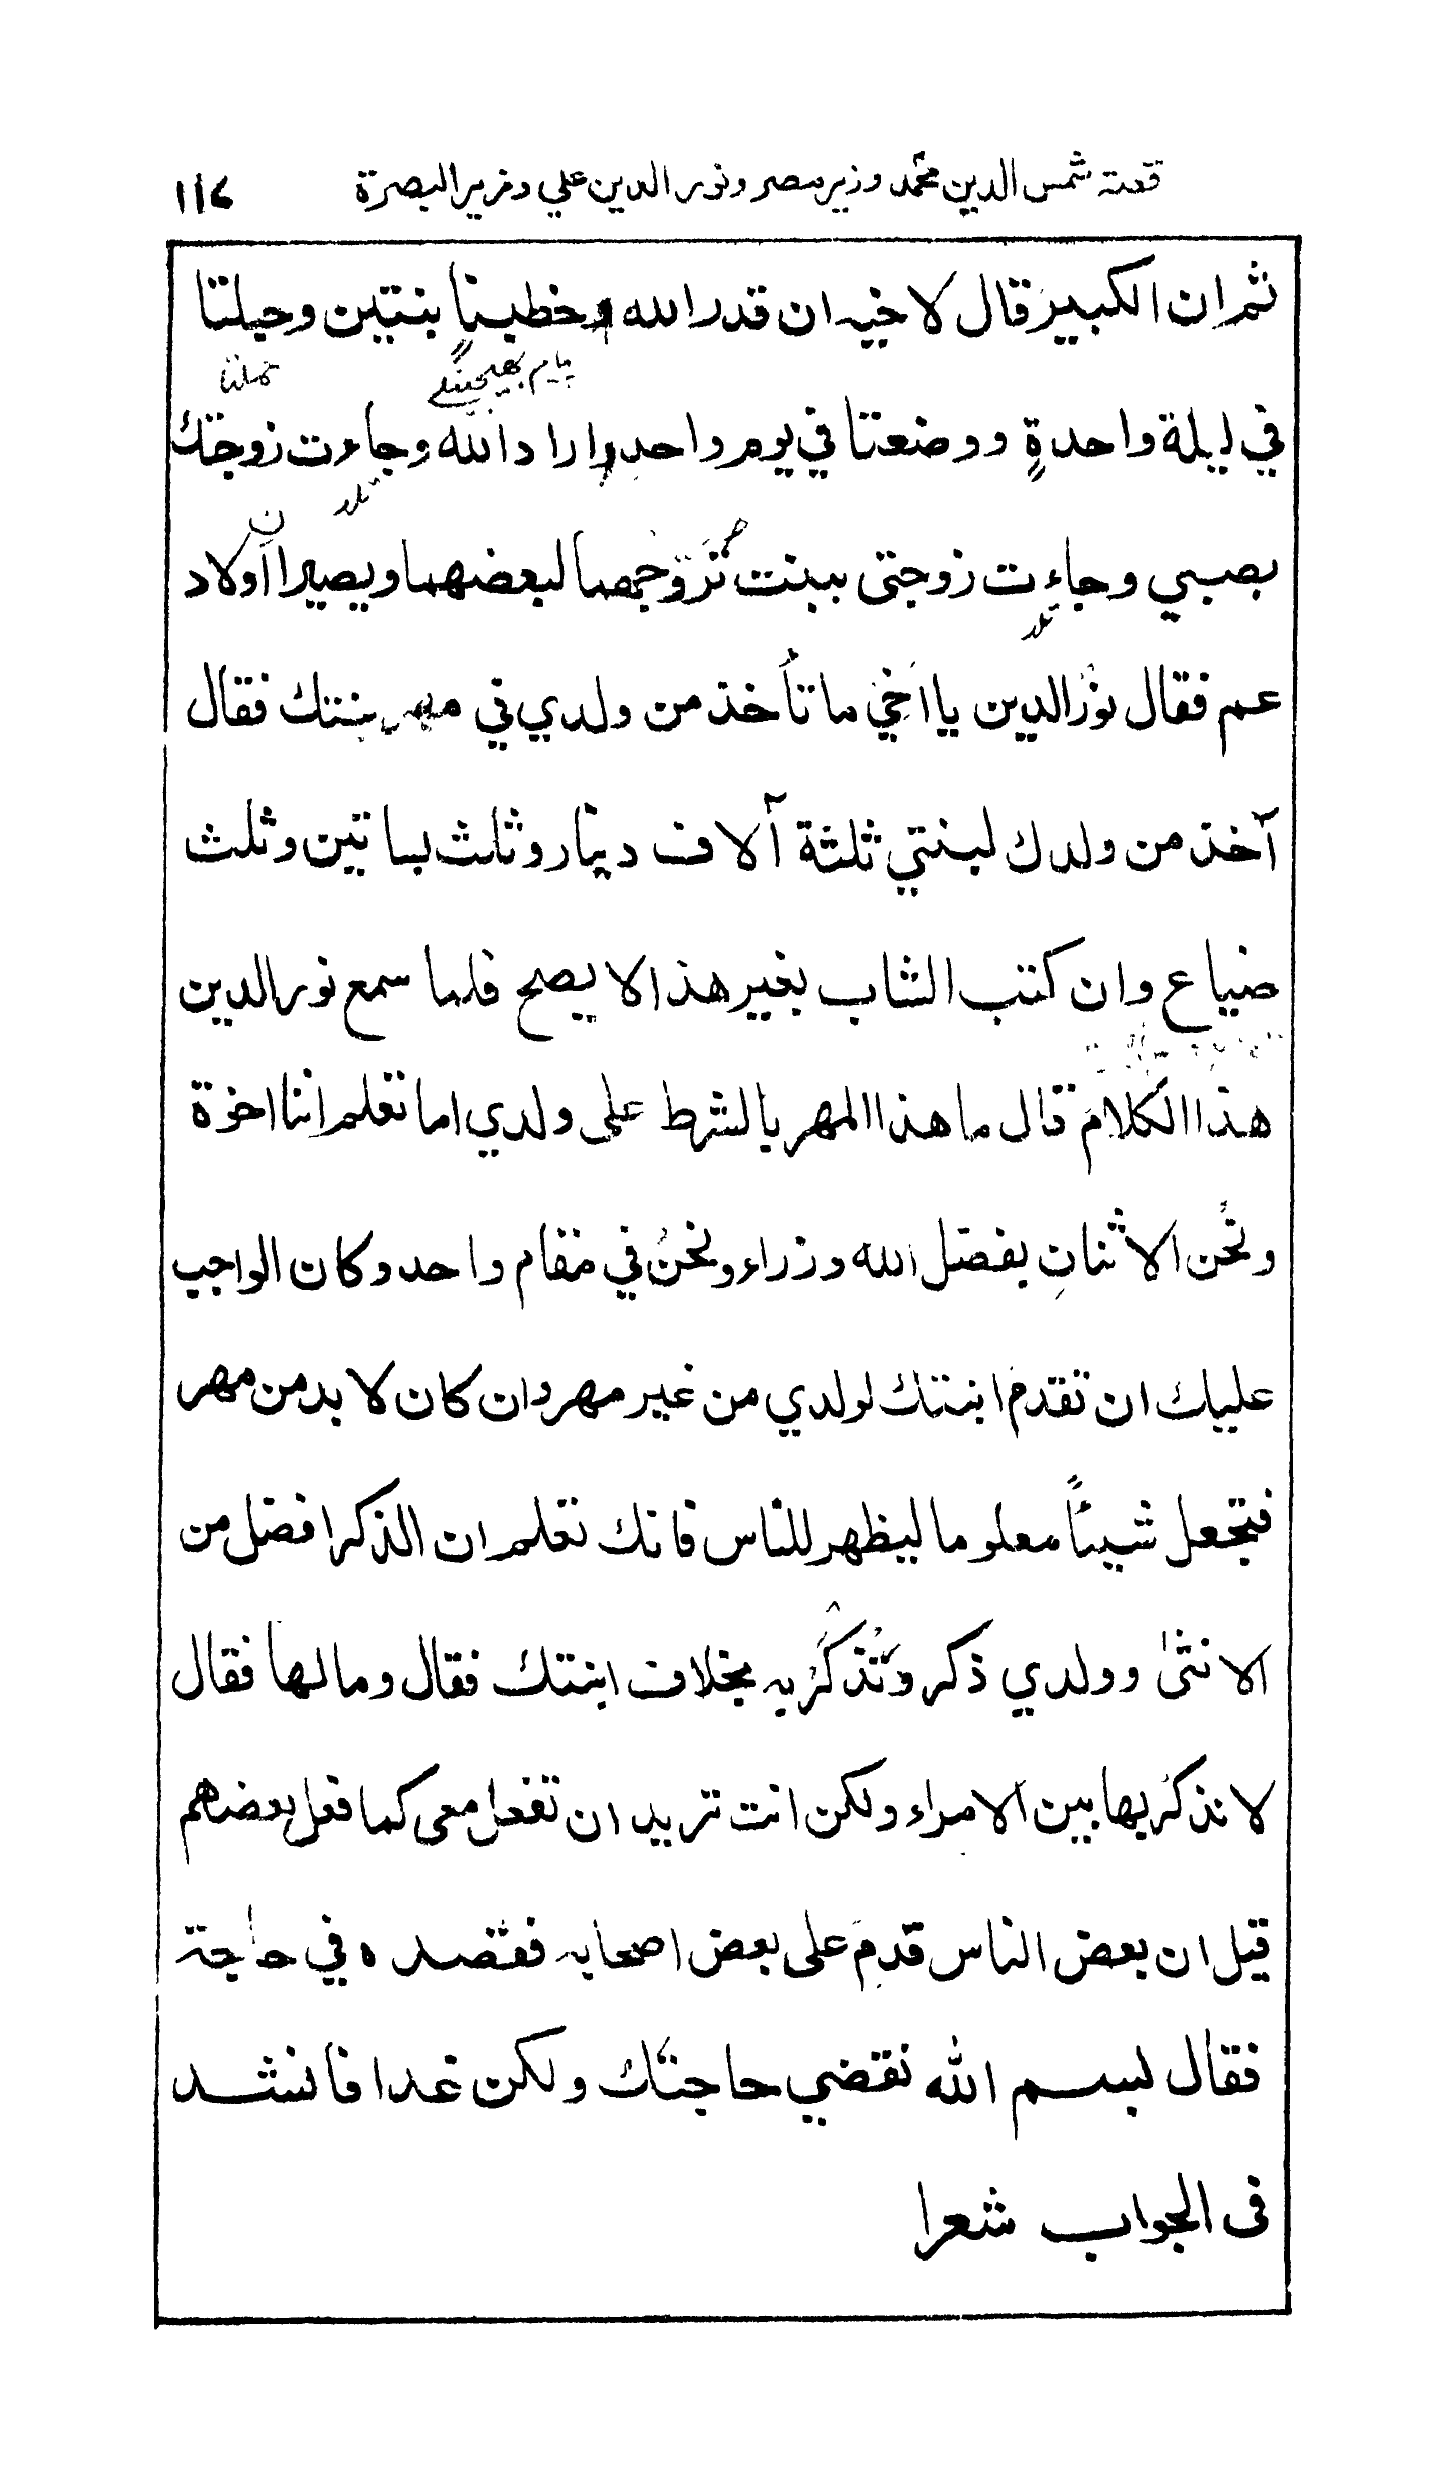 قصة شمس الدين محمد وزير مصر ونور الدين علي وزير البصرة
ثم ان الكبير قال لاخيه ان قدر الله وخطبنا بنتين وحبلتا
في ليلة واحدة ووضعتا في يوم واحد واراد الله وجاءت زوجتك
بصبي وجاءت زوجتى ببنت نزوجهما لبعضهما ويصيرا اولاد
عم فقال نور الدين يا اخي ما تأخذ من ولدي في مهر بنتك فقال
آخذ من ولدك لبنتي ثلثة آلاف دينار وثلث بساتين وثلث
ضياع وان كتب الشاب بغير هذا لا يصح فلما سمع نور الدين
هذا الكلام قال ما هذا المهر بالشرط على ولدي اما تعلم اننا اخوة
ونحن الاثنان بفضل الله وزراء ونحن في مقام واحد وكان الواجب
عليك ان تقدم ابنتك لولدي من غير مهر وان كان لا بد من مهر
فتجعل شيئاً معلوما ليظهر للناس فانك تعلم ان الذكر افضل من
الانثى وولدي ذكر ونذكر به بخلاف ابنتك فقال وما لها فقال
لا نذكر بها بين الامراء ولكن انت تريد ان تفعل معى كما فعل بعضهم
قيل ان بعض الناس قدم على بعض اصحابه فقصده في حاجة
فقال بسم الله نقضي حاجتك ولكن غدا فانشد
فى الجواب شعرا